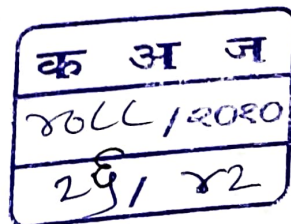 क अ ज
४०८८/२०२०
२६/ ४२